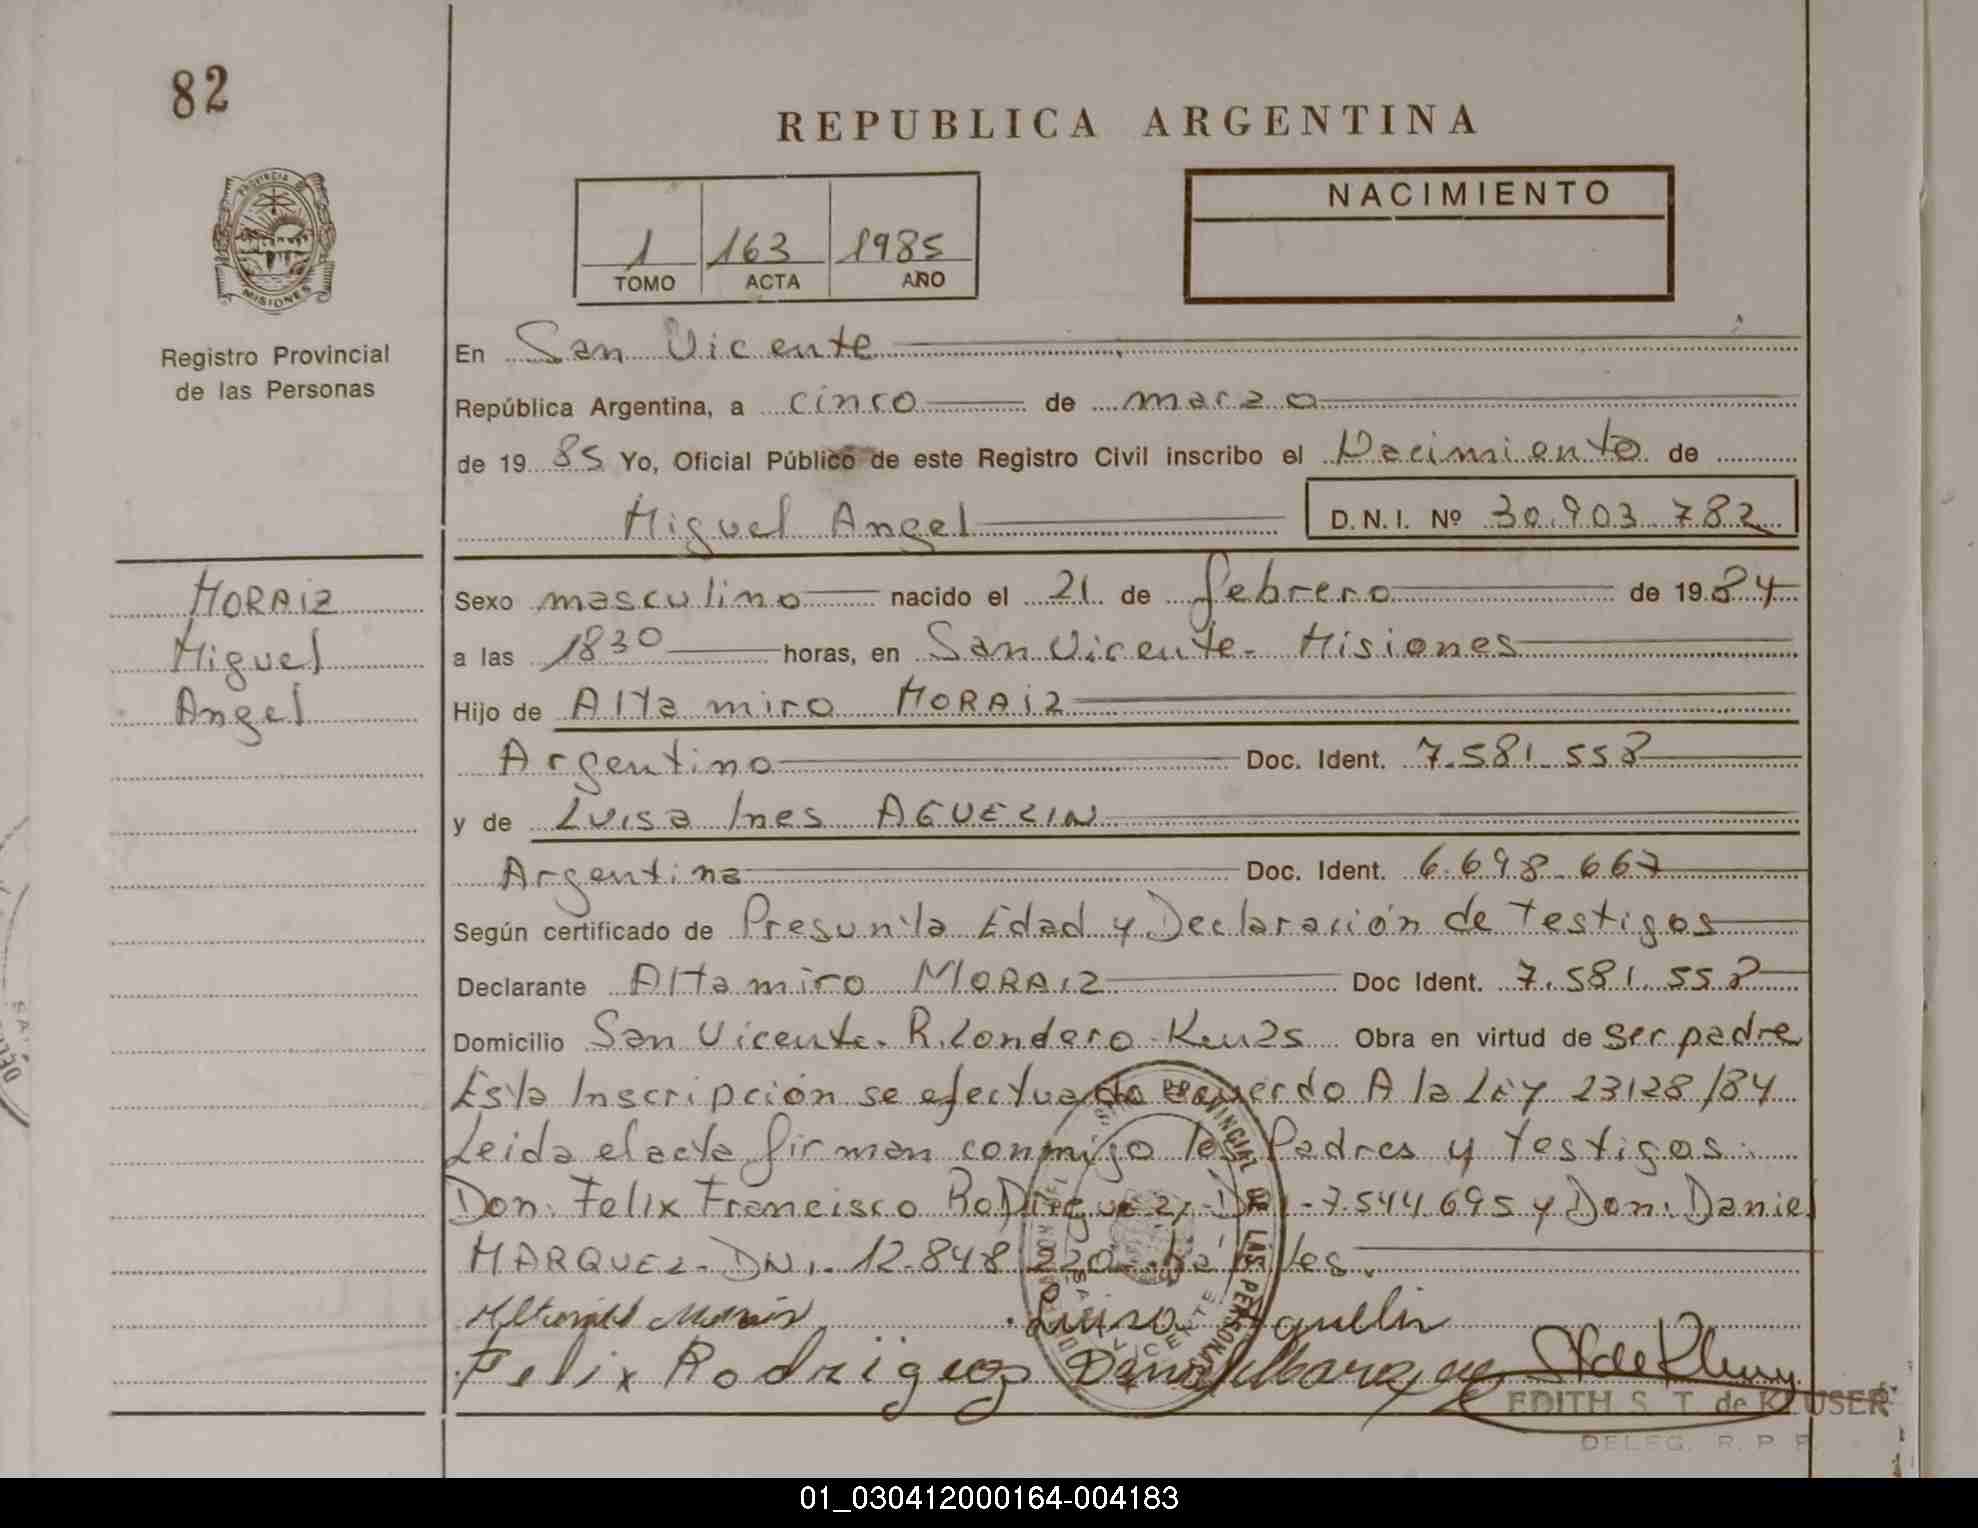 82
REPUBLICA ARGENTINA
NACIMIENTO
1 163 1985
TOMO ACTA AÑO
PROVINCIA DE
MISIONES
Registro Provincial
de las Personas
En San Vicente
República Argentina, a cinco de marzo
de 19 85 Yo, Oficial Público de este Registro Civil inscribo el Nacimiento de
Miguel Angel D.N.I. Nº 30.903.782
MORAIZ
Miguel
Angel
Sexo masculino nacido el 21 de febrero de 19 84
a las 1830 horas, en San Vicente - Misiones
Hijo de Altamiro MORAIZ
Argentino Doc. Ident. 7.581.558
y de Luisa Ines AGUELIN
Argentina Doc. Ident. 6.698.667
Según certificado de Presunta Edad y Declaración de Testigos
Declarante Altamiro MORAIZ Doc Ident. 7.581.558
Domicilio San Vicente. R. Londero Obra en virtud de ser padre
Esta Inscripción se efectua de acuerdo A la LEY 23128/84
Leida el acta firman conmigo los Padres y testigos:
Don. Felix Francisco RoDriguez, 7.544.695 y Don. Daniel
MARQUEZ - DNI. 12.848.220 - habiles.
Luisa Aguelin
Felix Rodrigez Daniel Marquez
EDITH S. T. de KLUSER
DELEG. R. P. P.
01_030412000164-004183